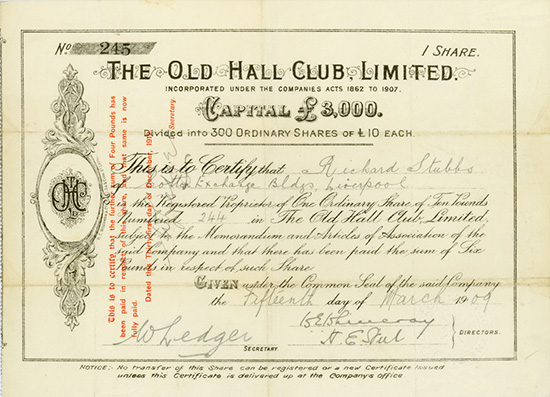 No 245
1 SHARE.
THE OLD HALL CLUB, LIMITED.
INCORPORATED UNDER THE COMPANIES ACTS 1862 TO 1907.
CAPITAL £3,000.
Divided into 300 ORDINARY SHARES OF £10 EACH.
This is to Certify that Richard Stubbs
of Cotton Exchange Bldgs, Liverpool
is the Registered Proprietor of One Ordinary Share of Ten Pounds
Numbered 244 in The Old Hall Club, Limited,
subject to the Memorandum and Articles of Association of the
said Company and that there has been paid the sum of Six
Pounds in respect of such Share
GIVEN under the Common Seal of the said Company
the Fifteenth day of March 1909
W Ledger
SECRETARY.
DIRECTORS.
NOTICE:- No transfer of this Share can be registered or a new Certificate issued
unless this Certificate is delivered up at the Company's Office
This is to certify, that the further sum of Four Pounds has
been paid in respect of this share, and that same is now
fully paid.
Dated this day of December, 191
Secretary